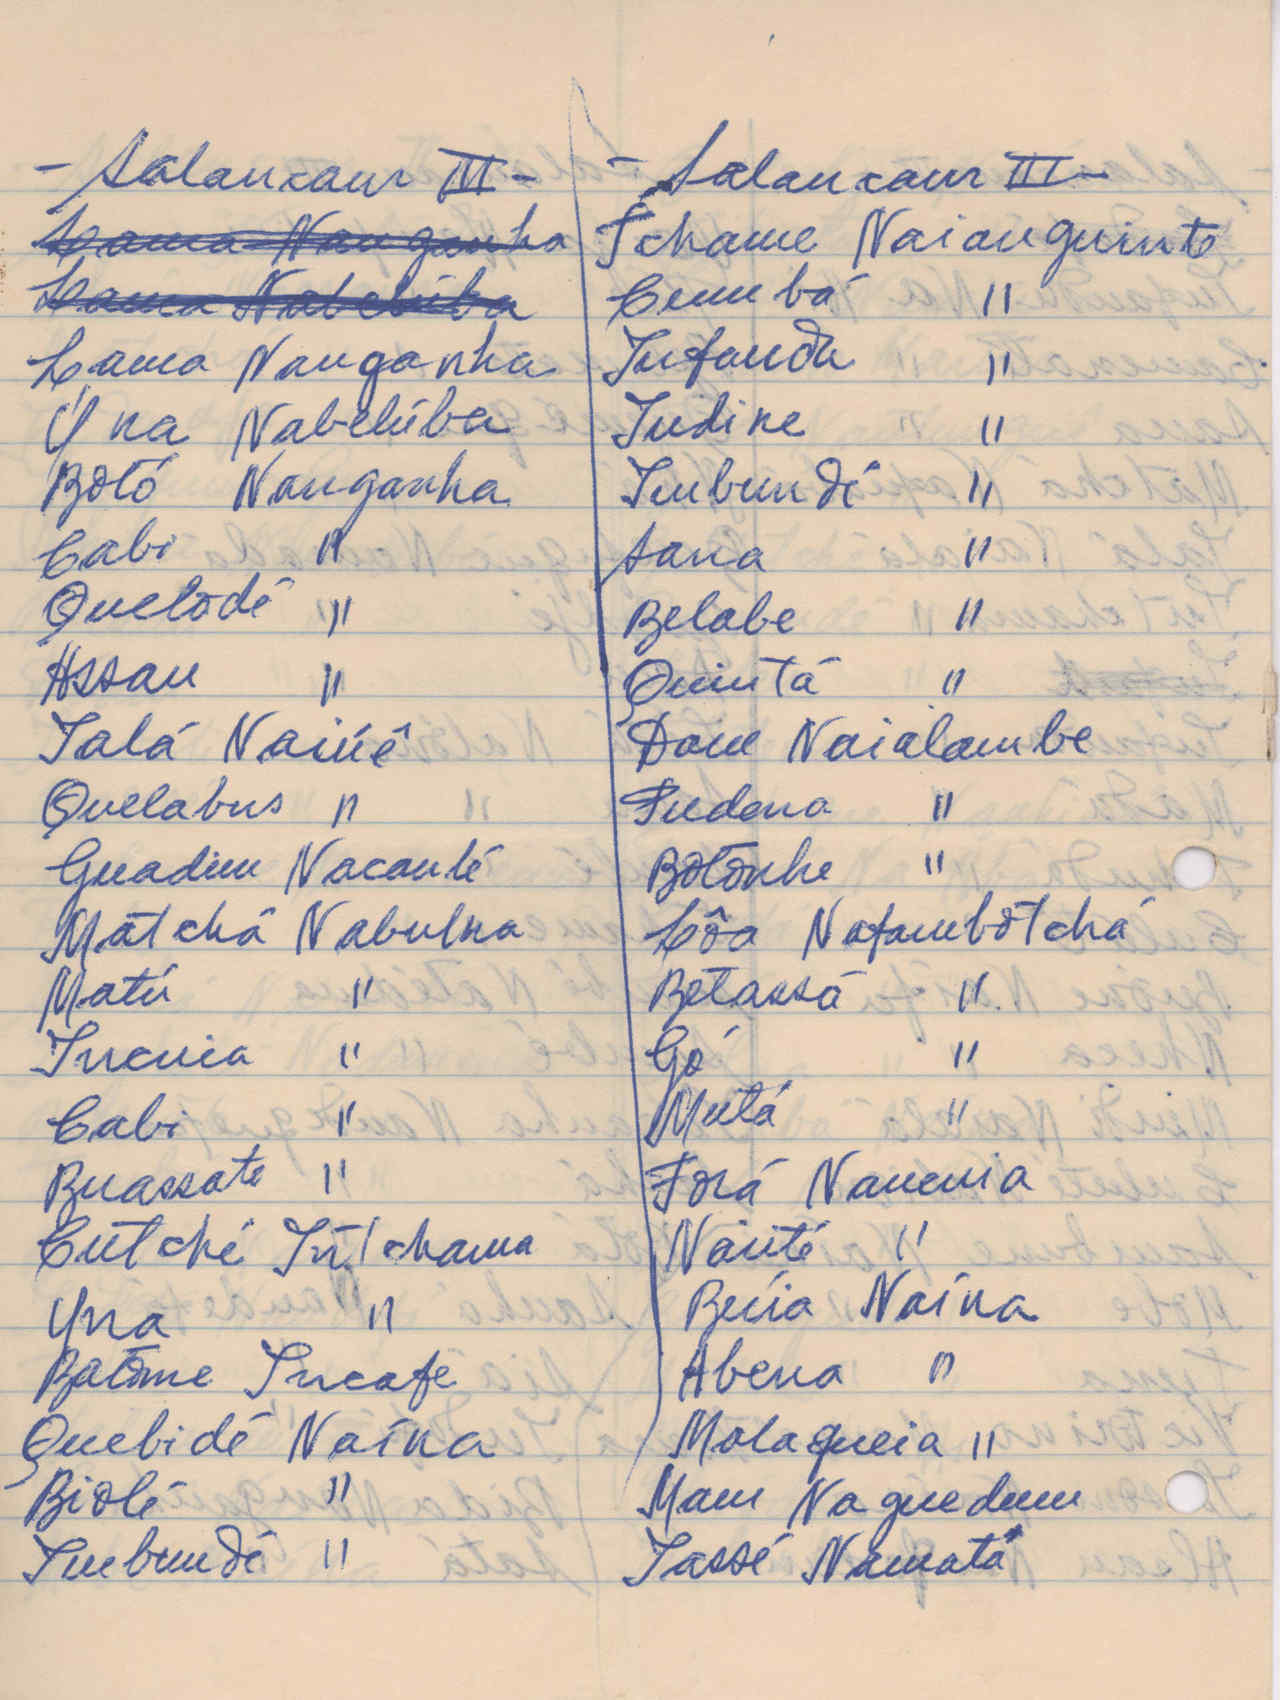 - Salancaur III -
Lama Nanganha
Lama Nabelúba
Lama Nanganha
Yna Nabelúba
Botó Nanganha
Cabi "
Quelodé "
Assan "
Ialá Nainé
Quelabus "
Guadim Nacanté
Matchá Nabulna
Matú "
Incuia "
Cabi "
Buassate "
Cutché Intchama
Yna "
Batome Incafe
Quebidé Naína
Biolé "
Imbundé "
- Salancaur III -
Tchame Naianguinte
Cumbá "
Infanda "
Indine "
Imbundé "
Sana "
Belabe "
Quintá "
Dam Naialambe
Fudena "
Botonhe "
Côa Nafambotchá
Betassá "
Gó "
Mutá "
Forá Nancuia
Nanté "
Becúia Naína
Abena "
Malagueia "
Mam Naguedum
Iassé Namatá